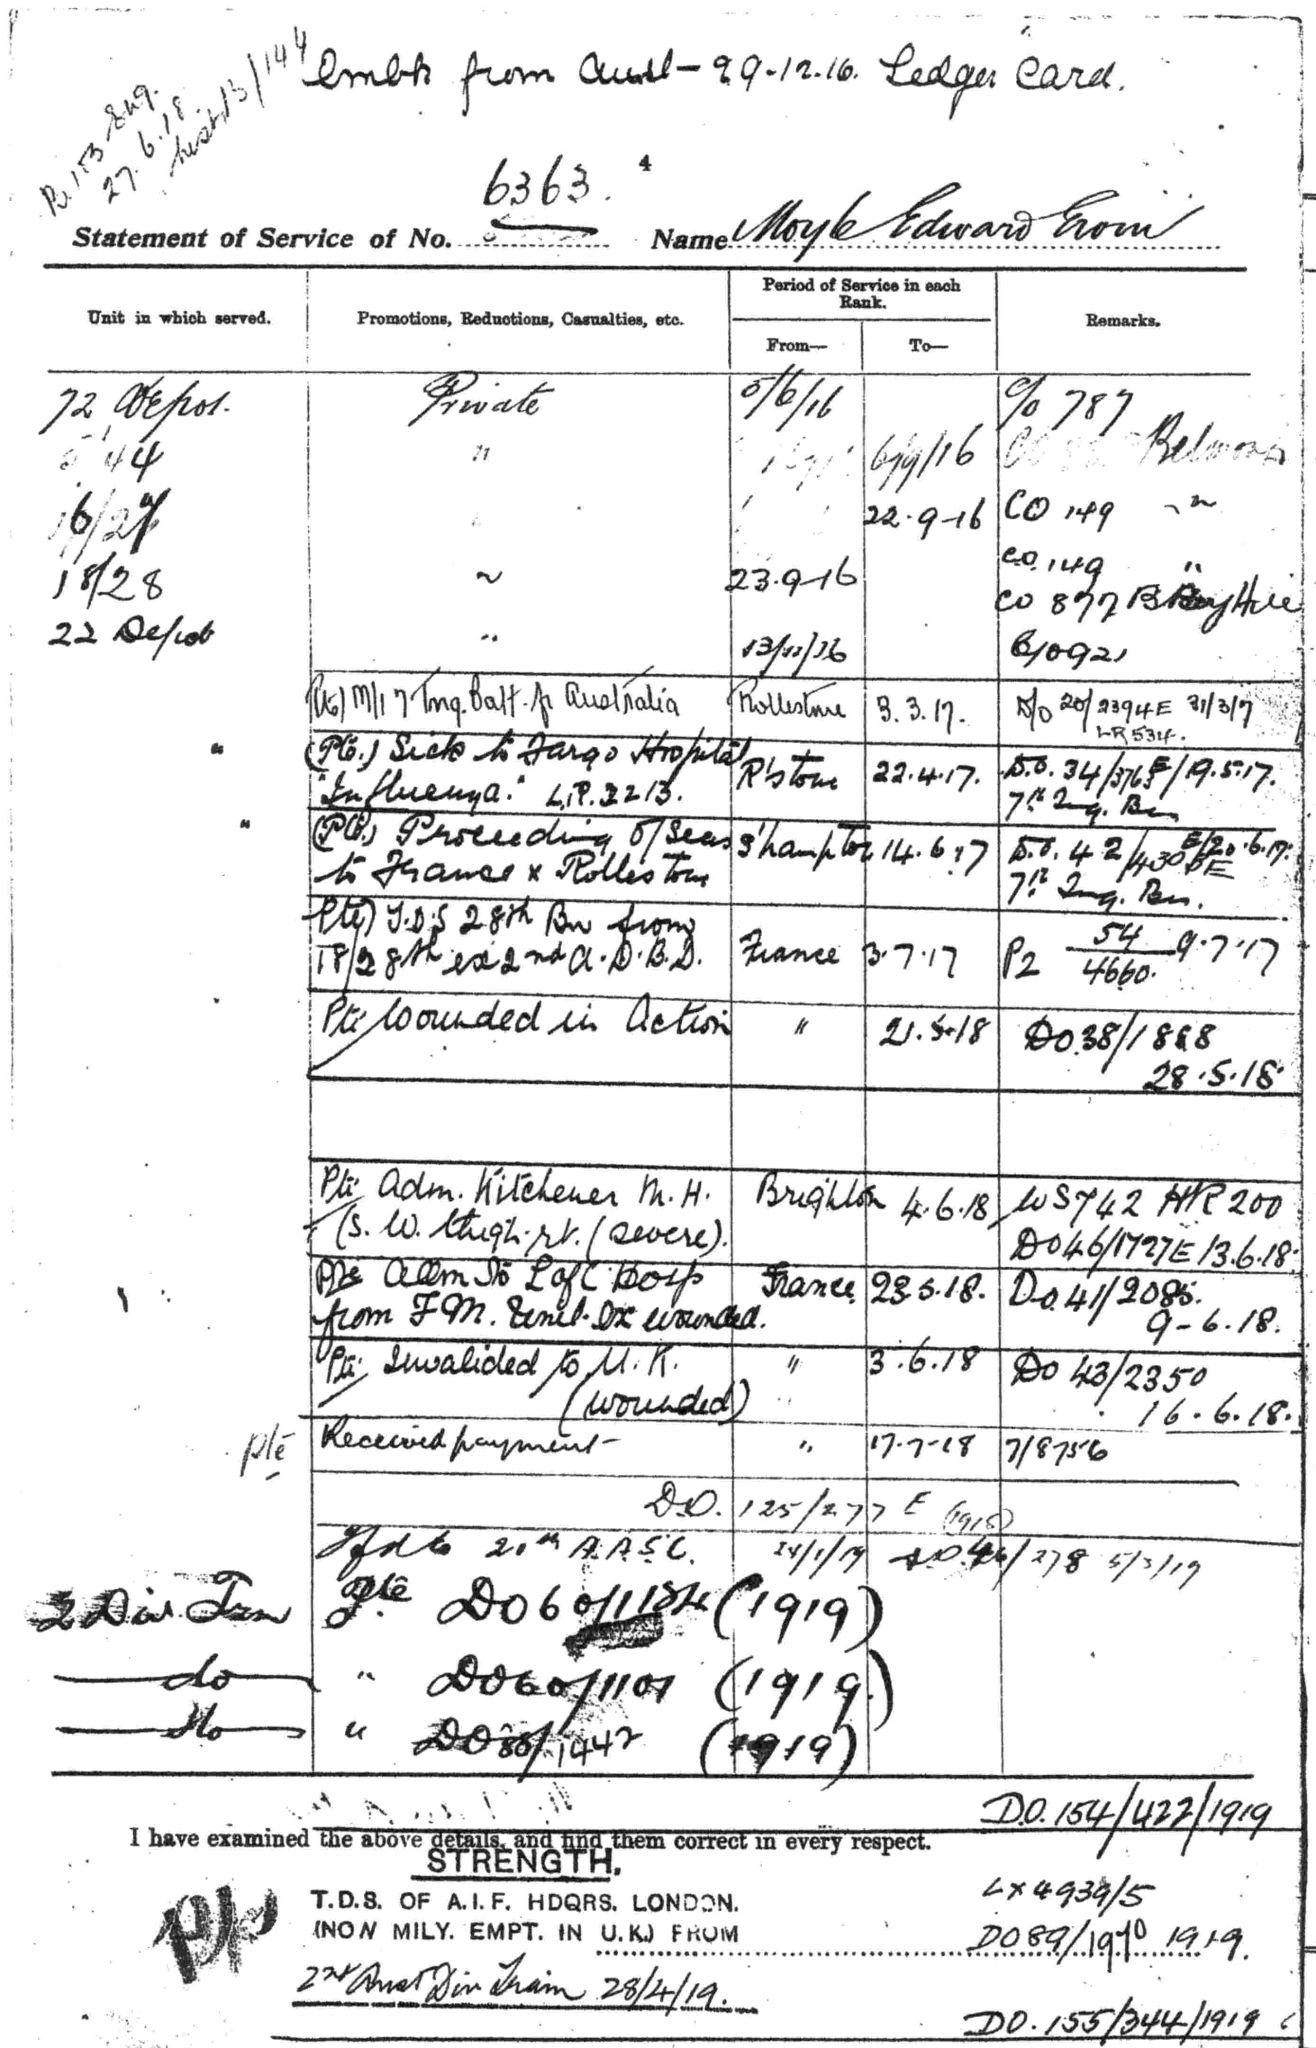 Embk from Aust - 29.12.16. Ledger Card.
27.6.18.
4
6363.
Statement of Service of No. Name Moyle Edward
Period of Service in each
Rank.
Unit in which served. Promotions, Reductions, Casualties, etc. Remarks.
From— To—
72 Depot. Private 5/6/16 % 787
44 " 6/9/16 Belmont
16/27 22.9-16 CO 149 "
18/28 " 23.9-16 CO.149 "
CO 877 B
22 Depot "
M/I 7 Trng. Batt. fr Australia Rollestone 3.3.17. D/O 20/2394E 31/3/7
" (Pte.) Sick to Fargo Hospital R'stone 22.4.17. D.O. 34/ /19.5.17.
"Influenza." 7th Trg. Bn
" (Pte.) Proceeding O/Seas S'hampton 14.6.17 D.O. 42/
to France x Rollestone 7th Trg. Bn.
(Pte) T.O.S 28th Bn from
18/28th ex 2nd A.D.B.D. France 3.7.17 P2 54/4660. 9.7.17
Pte Wounded in Action " 21.5.18 DO.38/1888
28.5.18.
Pte Adm. Kitchener M.H. Brighton 4.6.18 WS742 HR 200
(S.W. thigh. rt. (severe). DO46/1727E 13.6.18.
Pte Adm to Hosp France 23.5.18. Do.41/2085.
from F.M. wounded. 9-6.18.
Pte Invalided to U.K. " 3.6.18 DO 43/2350
(wounded) 16.6.18.
Pte Received payment " 17-7-18 7/8756
D.O. 125/277 E (1918)
Tfd to 20th A.A.S.C. 278 5/3/19
2 Div. Trn Pte DO60/ (1919)
do " DO60/1107 (1919)
do " 1442 (1919)
D.O.154/422/1919
I have examined the above details, and find them correct in every respect.
STRENGTH.
T.D.S. OF A.I.F. HDQRS. LONDON.
(NOW MILY. EMPT. IN U.K.) FROM
Lx4939/5
DO89/1970 1919.
2nd Aust Div Train 28/4/19.
DO.155/344/1919